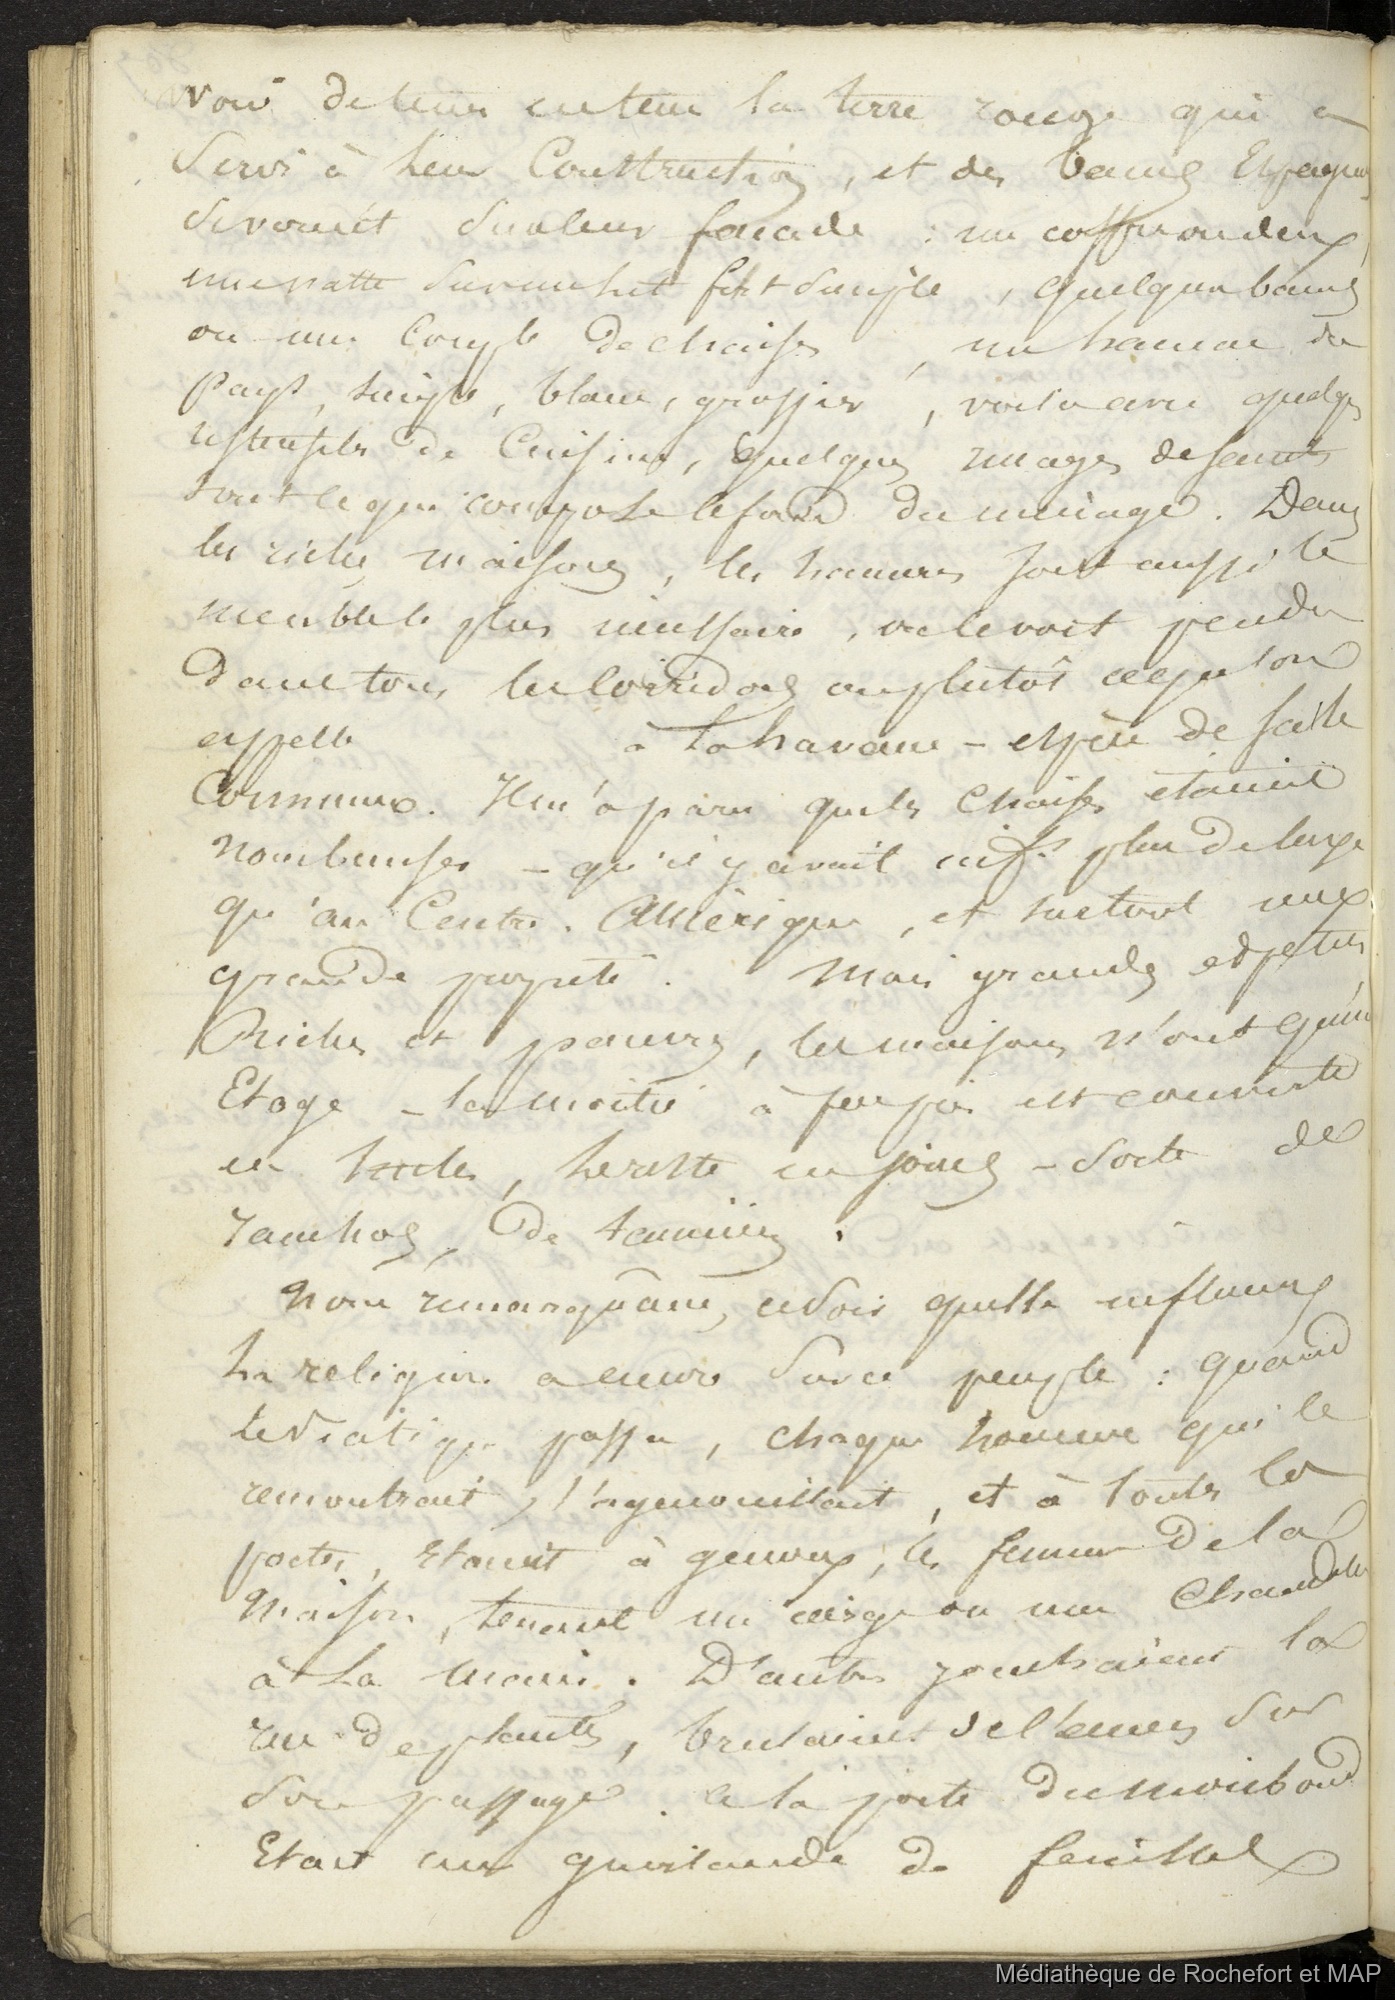 voir de tems en tems la terre rouge qui a
servi à leur Construction, et des bancs Espagnols
se voient sur leur façade : un coffre ou deux
une natte sur un lit fort simple, quelques bancs
ou une couple de chaises, un hamac du
Pays, simple, blanc, grossier, voila avec quelqs
ustensiles de Cuisine, quelques images de saints
tout ce qui compose le fond du ménage. Dans
les riches maisons, les hamacs sont aussi le
meuble le plus nécessaire, on le voit pendu
dans tous les Corridors ou plutôt ce que l'on
appelle à la havane – espèce de salle
Commune. Il m'a paru que les chaises étaient
nombreuses – qu'il y avait plus de luxe
qu'au Centre. Amérique, et surtout une
grande propreté. Mais grandes et petites
Riches et pauvres, les maisons n'ont qu'un
Etage – la moitié à peu près est couverte
en tuiles, le reste en joncs – sorte de
ranchos, de
Nous remarquâmes, ce soir quelle influence
la religion a encore sur ce peuple : quand
le viatique passa, chaque homme qui le
rencontrait, s'agenouillait, et à toutes les
portes, étaient à genoux, les femmes de la
Maison, tenant un cierge ou une Chandelle
à la main. D'autres jonchaient la
rue de plantes, brulaient de l'encens sur
son passage. a la porte du moribond
Etait une guirlande de feuilles
Médiathèque de Rochefort et MAP